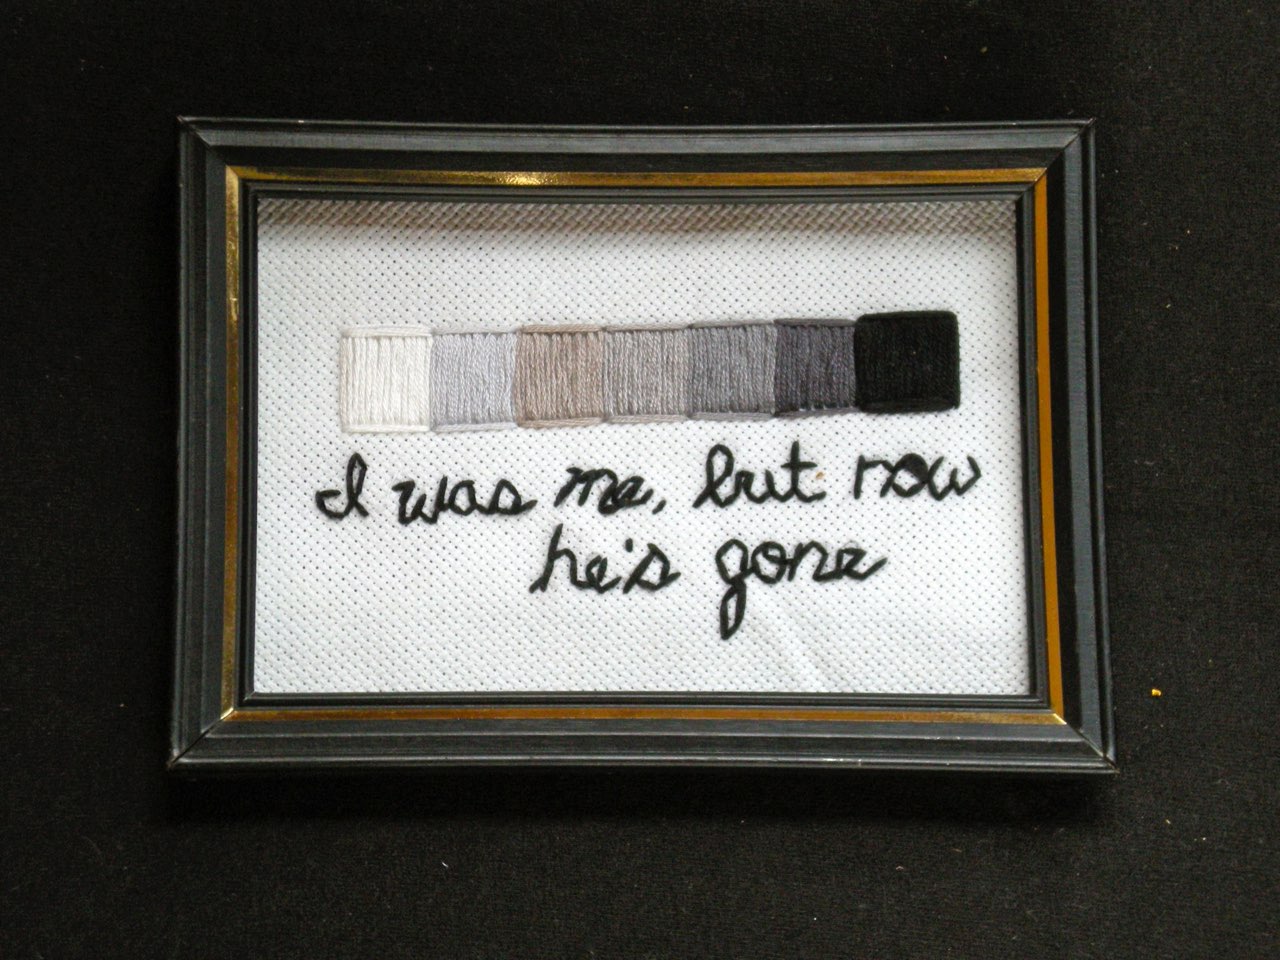 I was me, but now
he's gone